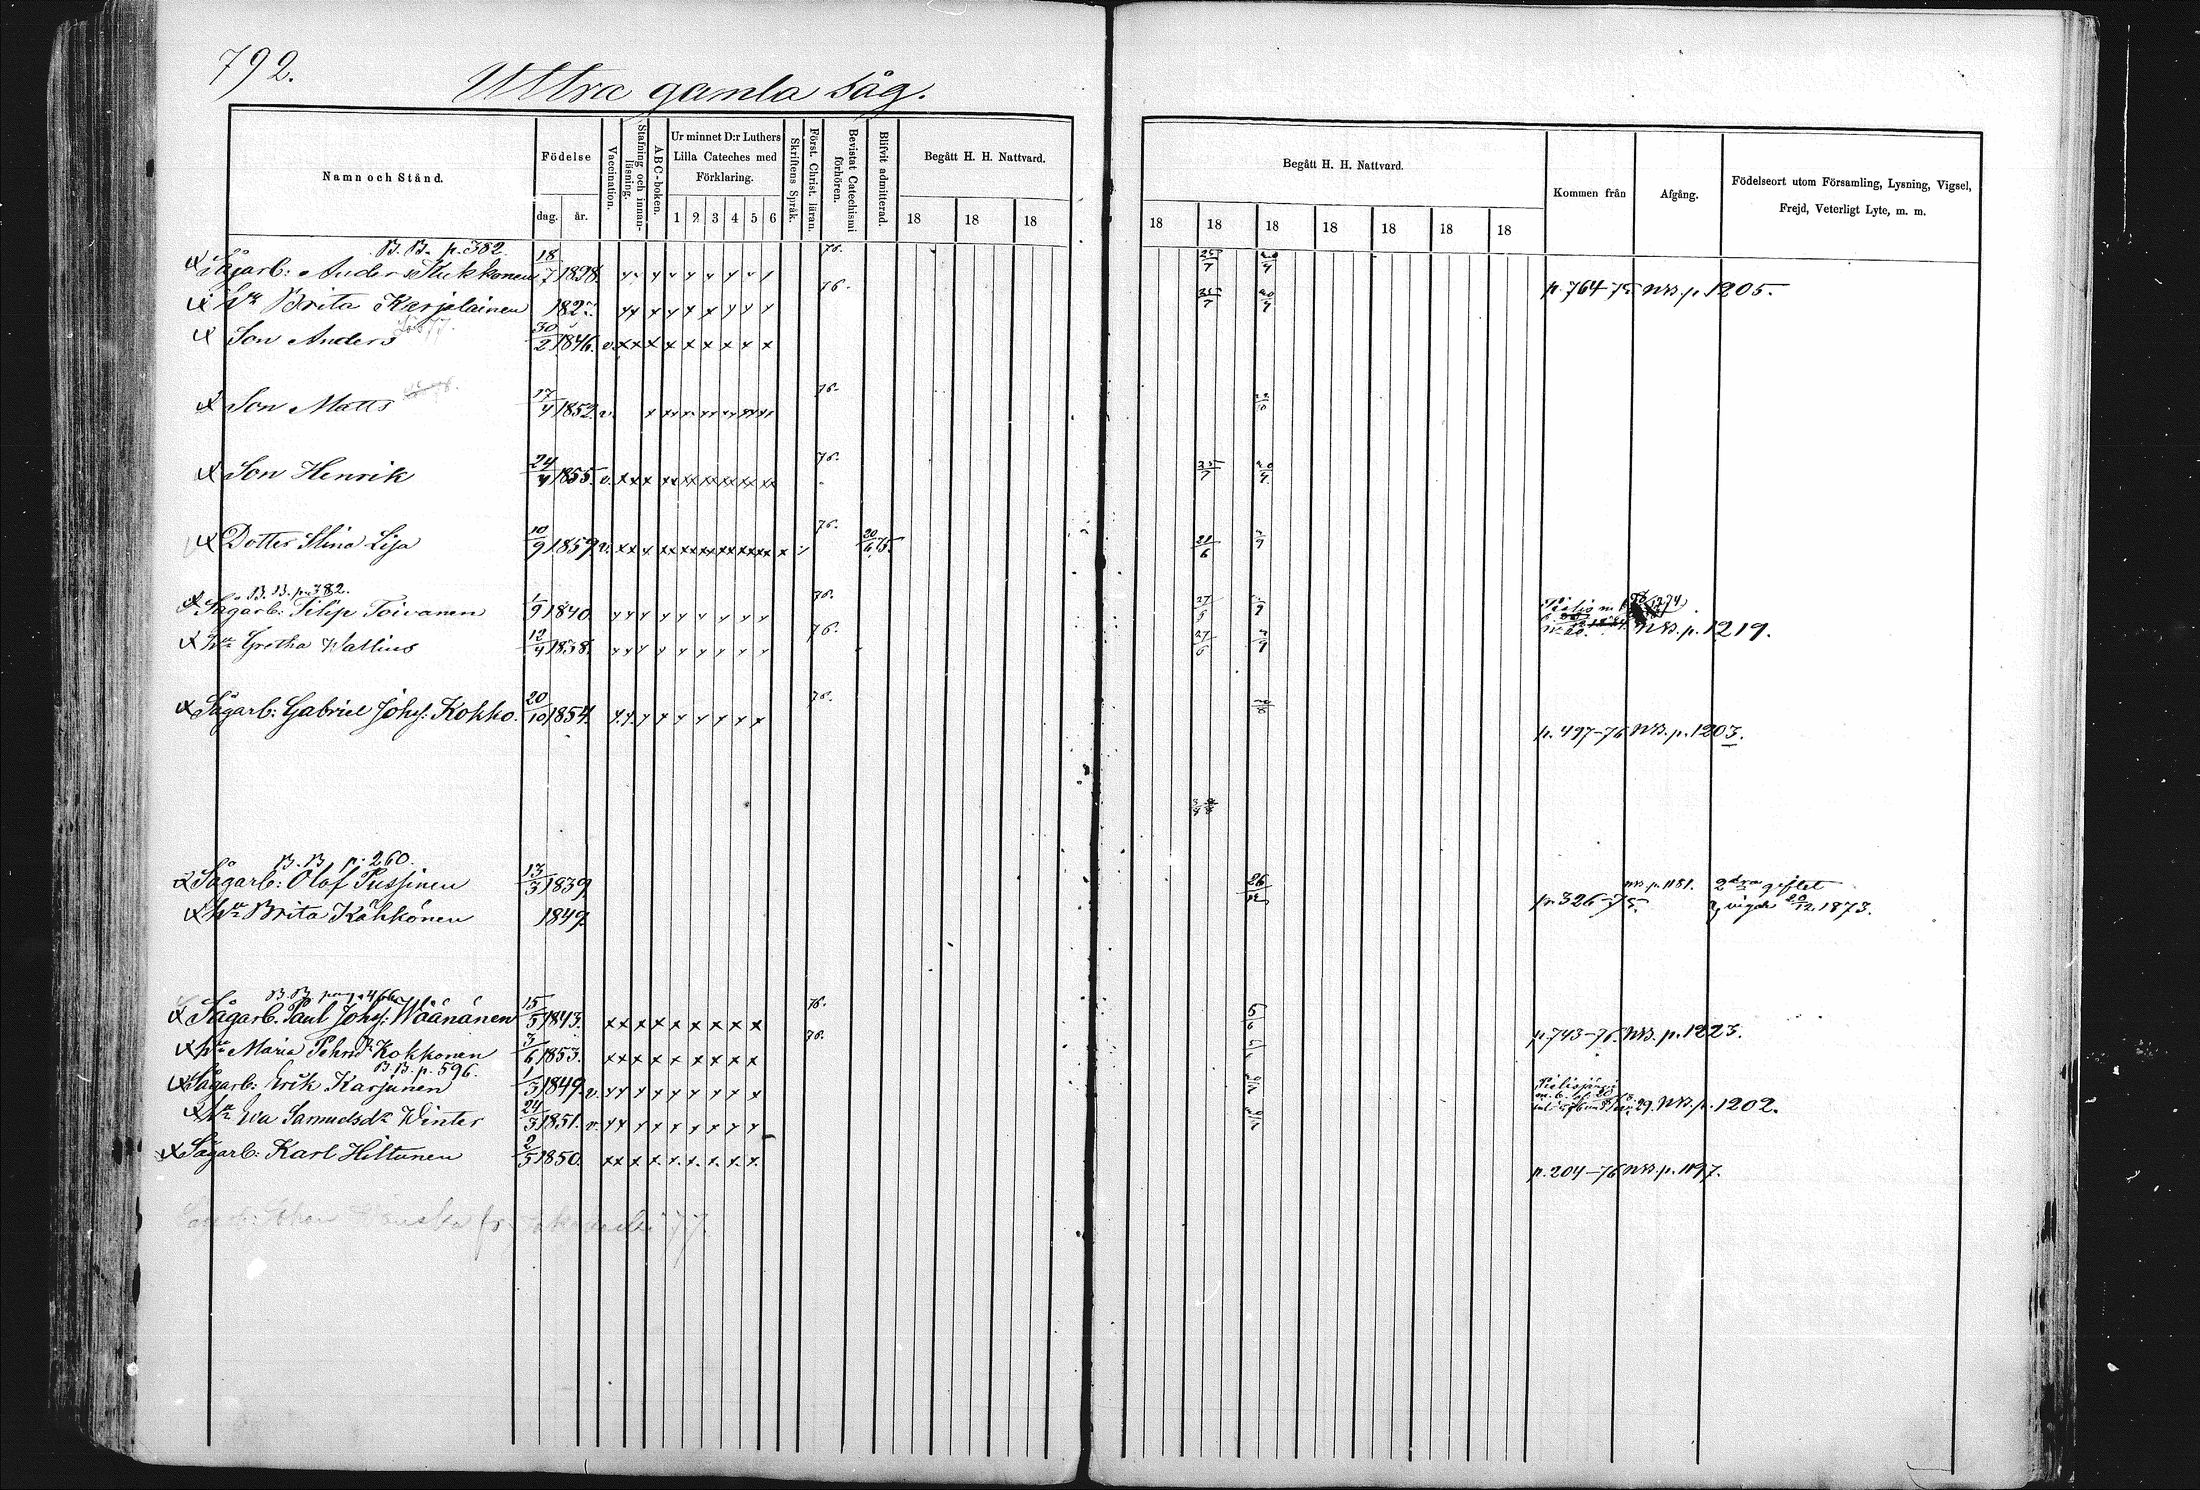 792.
Uttra gamla såg.
Namn och Stånd.
Födelse
dag. år.
Vaccination.
Stafning och innan-läsning.
ABC-boken.
Ur minnet D:r Luthers
Lilla Cateches med
Förklaring.
1 2 3 4 5 6
Skriftens Språk.
Först. Christ. läran.
Bevistat Catechismi förhören.
Blifvit admitterad.
Begått H. H. Nattvard.
18 18 18
Begått H. H. Nattvard.
18 18 18 18 18 18 18
Kommen från
Afgång.
Födelseort utom Församling, Lysning, Vigsel,
Frejd, Veterligt Lyte, m. m.
B. B. p. 382.
Sågarb: Anders 18/7 1828. 76. 25/7 20/4 p. 764-75. NB. p. 1205.
Hu Brita Karjalainen 182 76. 25/7 20/4
Son Anders 30/2 1846. v. x x x x x x x x x
Son Matts 17/4 1852. v. 76.
Son Henrik 24/4 1855. v. 76. 25/7 20/4
Dotter Stina Lisa 10/9 1859 v. 76. 20/6 75. 20/6
B. B. p. 382.
Sågarb: Filip Toivanen 1/9 1840. 76. 27/5
Hu Gretha Wallius 12/4 1838. 76. NB. p. 1219.
Sågarb: Gabriel Johs: Kokko. 20/10 1854. 76. p. 497-76 NB. p. 1203.
B. B. p. 260.
Sågarb: Olof Pussinen 13/3 1839 26/12 p. 326-75. NB. p. 1181. 2dra giftet
Hu Brita Kähkönen 1849. vigde 20/12. 1873.
B. B. pag. 466.
Sågarb. Paul Johs: Wäänänen 15/5 1843. x x x x x x x x x 76. 5/6 p. 743-76. NB. p. 1223.
Hu Maria Pehrsdr Kokkonen 3/6 1853. x x x x x x x x x 76.
B. B. p. 596.
Sågarb: Erik Karjunen 1/3 1849. v. NB. p. 1202.
Hu Eva Samuelsdr Winter 24/3 1851. v.
Sågarb: Karl Hiltunen 2/5 1850. x x x x x x x x x p. 204-76 NB. p. 1197.
77.